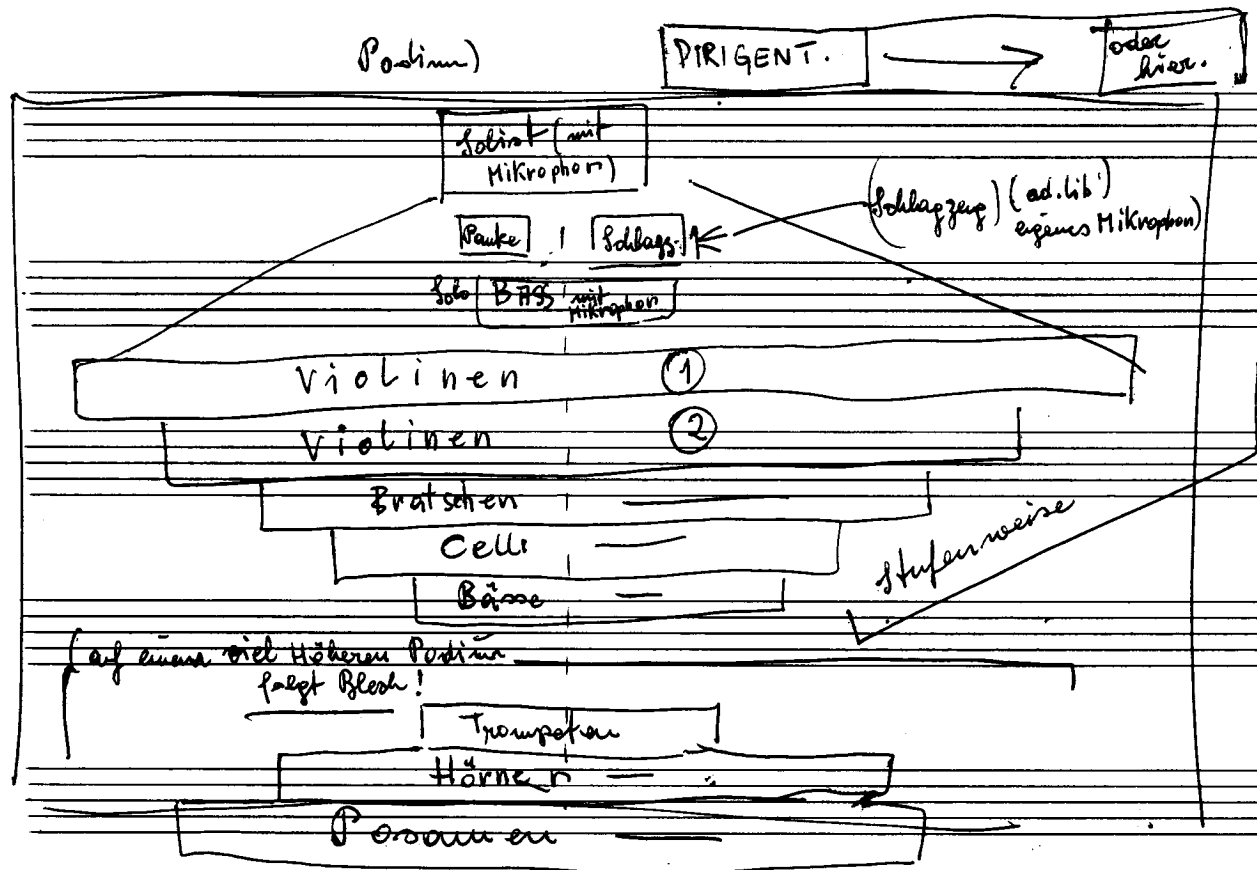 Podium)
DIRIGENT.
oder
hier.
Solist (mit
Mikrophon)
(Schlagzeug) (ad. lib'
eigenes Mikrophon)
Pauke
Schlagz.
Solo
BASS mit
Mikrophon
Violinen ①
Violinen ②
Bratschen
Celli
Bässe
Stufenweise
(auf einem viel Höheren Podium
folgt Blech!
Trompeten
Hörner
Posaunen